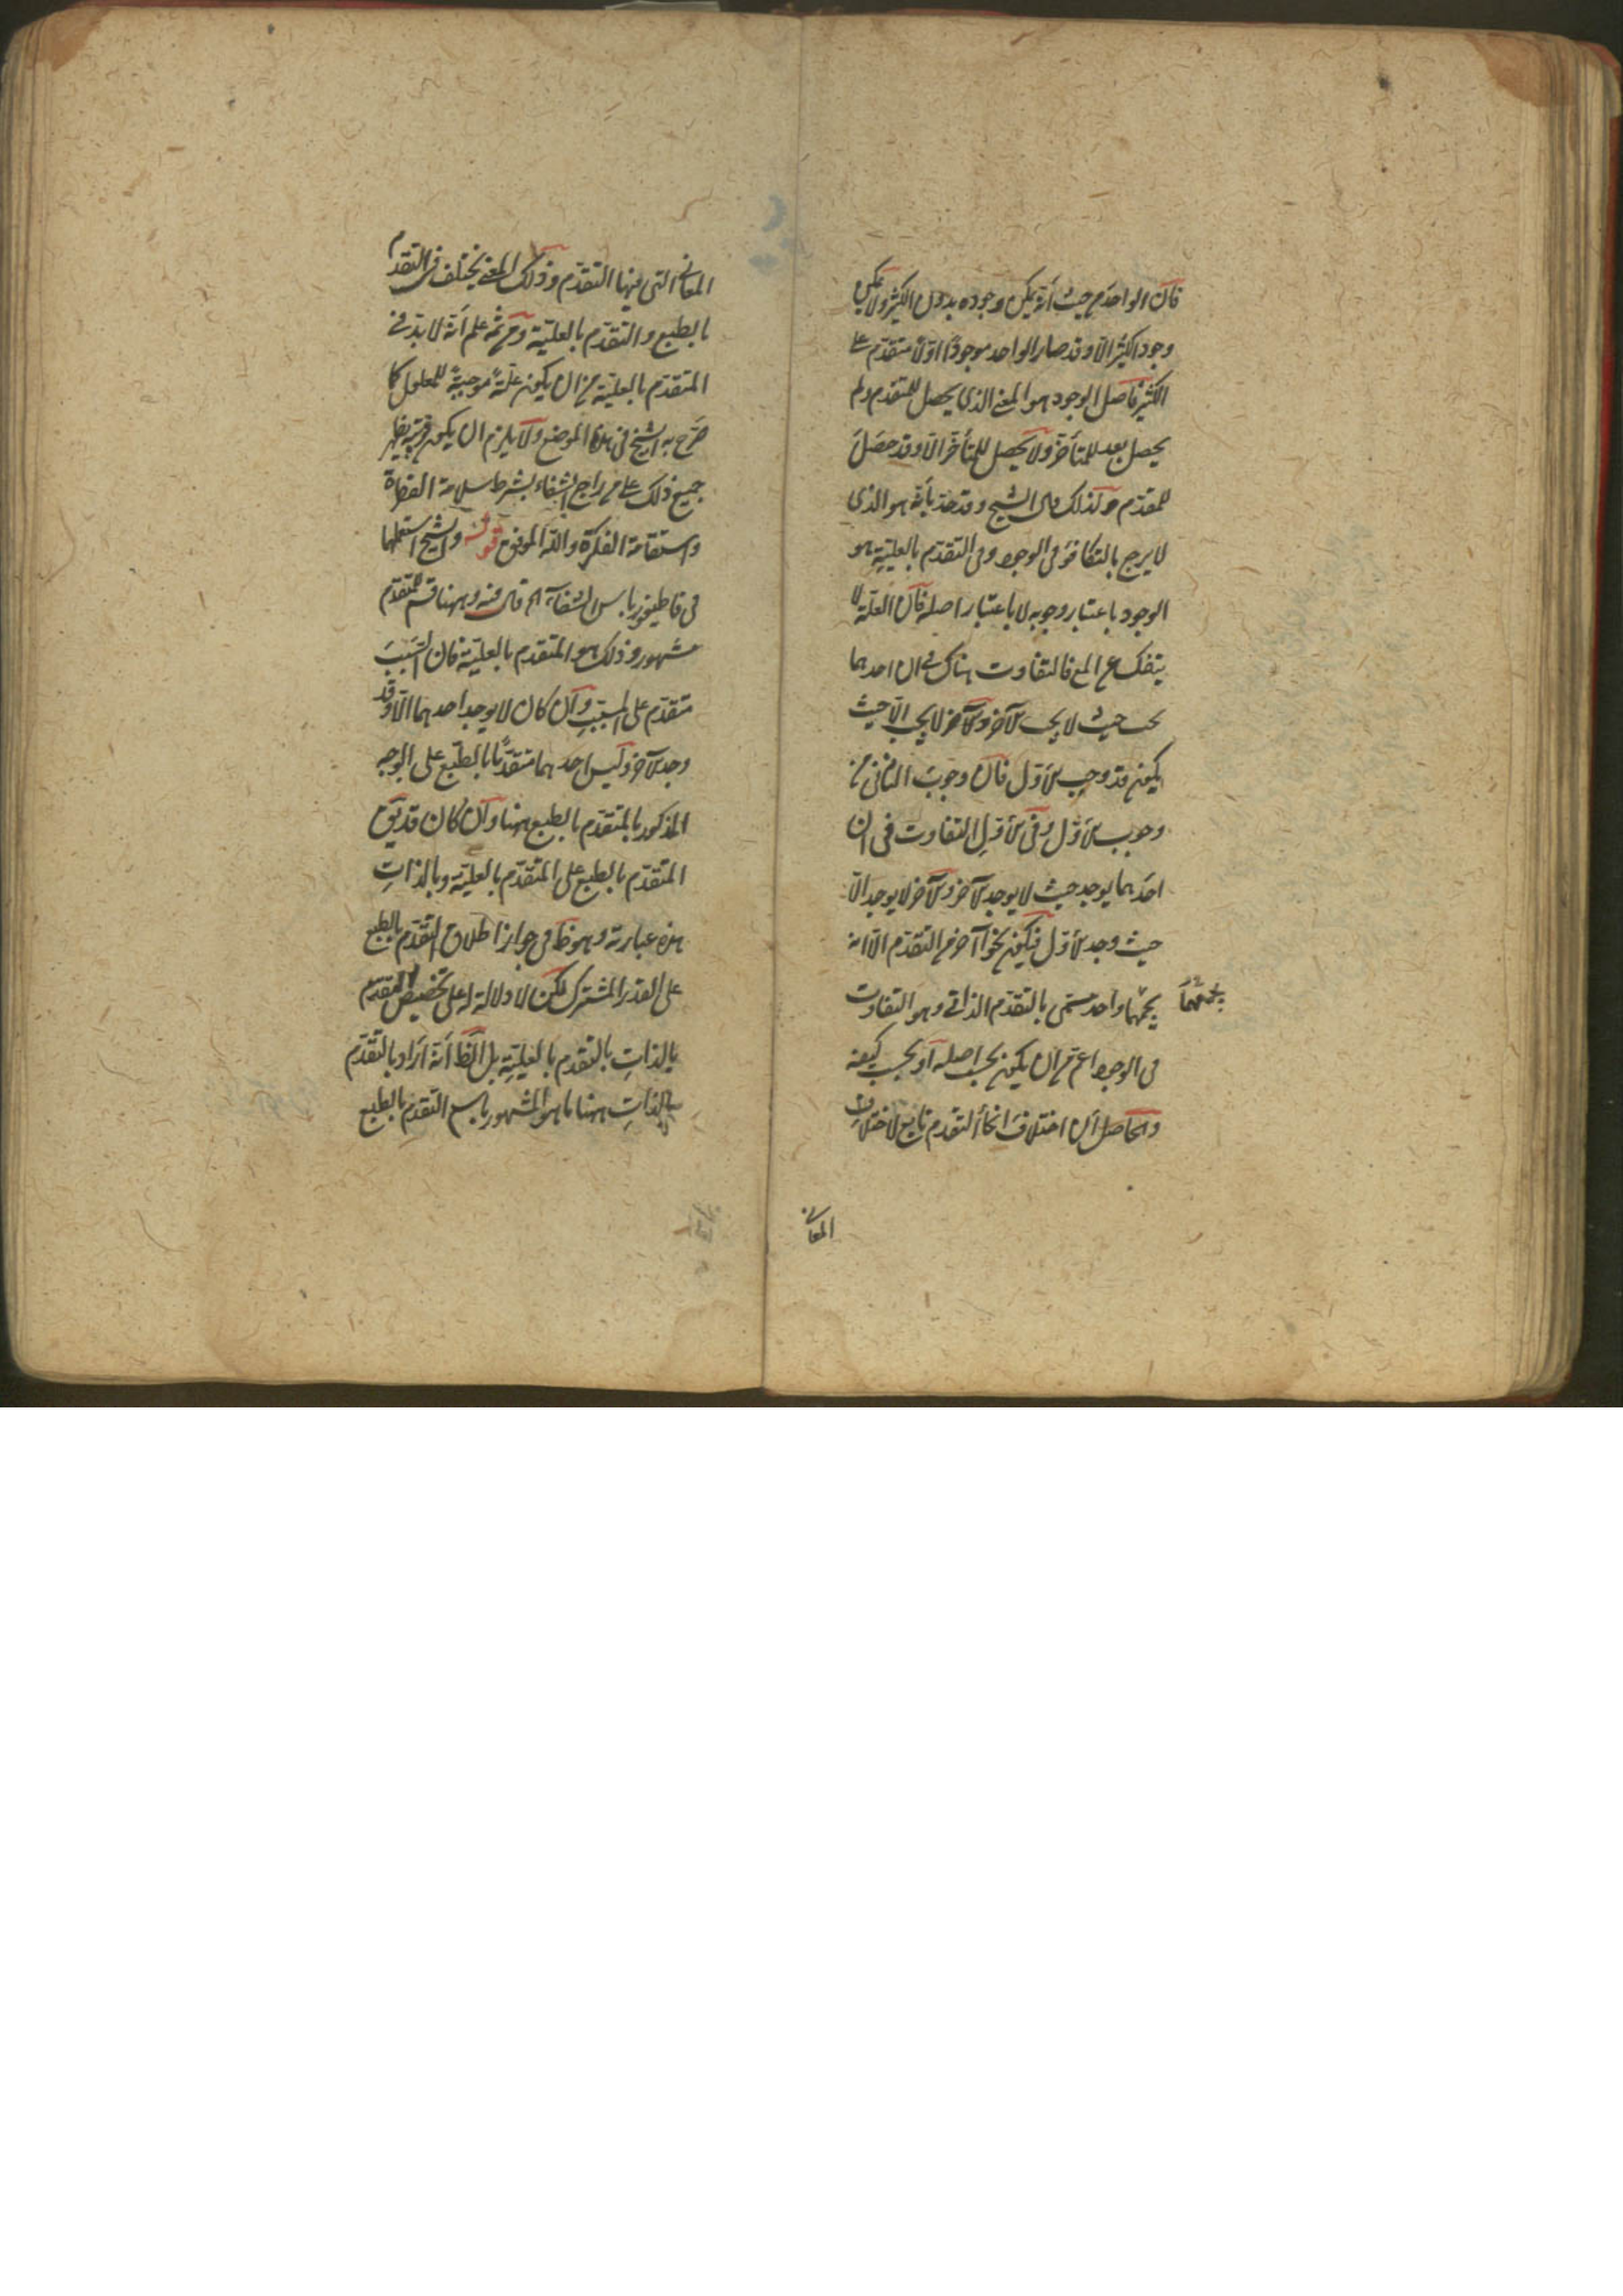 فان الواحد من حيث أنه يمكن وجوده بدون الكثير ولا يمكن
وجود الكثير الّا وقد صار الواحد موجودًا اوّلًا متقدّم على
الكثير فاصل الوجود هو المعنى الذى يحصل للمتقدم ولم
يحصل بعد للمتأخر ولا يحصل للمتأخر الّا وقد حصل
للمقدّم ولذلك قال الشيخ وقد حدّ بأنّه هو الذى
لا يرجع بالتكافؤ فى الوجود وفى التقدم بالعليّة هو
الوجود باعتبار وجوبه لا باعتبار اصله فان العلّة لا
ينفك عن المع فالتفاوت هناك فى ان احدهما
يجب حيث لا يجب الآخر والآخر لا يجب الّا حيث
يكون قد وجب الأول فان وجوب الثانى من
وجوب الأول وفى الأول التفاوت فى ان
احدهما يوجد حيث لا يوجد الآخر والآخر لا يوجد الّا
حيث وجد الأول فيكون نحوًا آخر من التقدّم الّا انه
يجمعهما واحد مسمّى بالتقدّم الذاتى وهو التفاوت
يجمعهما
فى الوجود اعم من ان يكون بحسب اصله او بحسب كيفيته
والحاصل ان اختلاف انحاء التقدم تابع لاختلاف
المعانى
المعانى التى فيها التقدّم وذلك المعنى يختلف فى التقدم
بالطبع والتقدّم بالعليّة ومن ثمّه علم أنه لا بدّ فى
المتقدّم بالعليّة من ان يكون علّةً موجبةً للمعلول كما
صرّح به الشيخ فى هذا الموضع ولا يلزم ان يكون قريبة يظهر
جميع ذلك على من راجع الشفاء بشرط سلامة الفطرة
واستقامة الفكرة والله الموفق قوله والشيخ استعملهما
فى قاطيغورياس الشفاء اه قال فيه وههنا قسم للمتقدّم
مشهور وذلك هو المتقدم بالعليّة فان السبب
متقدّم على المسبّب وان كان لا يوجد احدهما الّا وقد
وجد الآخر وليس احدهما متقدّمًا بالطبع على الوجه
المذكور بالمتقدّم بالطبع ههنا وان كان قد يق
المتقدّم بالطبع على المتقدّم بالعليّة وبالذات
هذه عبارته وهو ظ فى جواز اطلاق التقدّم بالطبع
على القدر المشترك لكن لا دلالة له على تخصيص التقدّم
بالذات بالتقدم بالعليّة بل الظ أنه اراد بالتقدّم
بالذات ههنا ما هو المشهور باسم التقدّم بالطبع